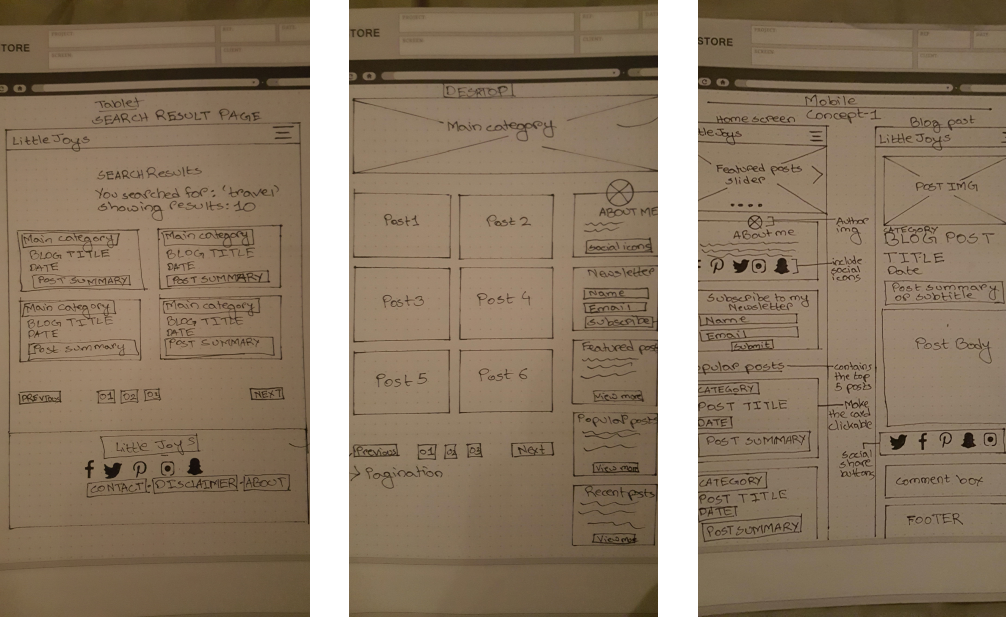 TORE
Tablet
SEARCH RESULT PAGE
Little Joys
SEARCH Results
You searched for: 'travel'
showing results: 10
Main category
BLOG TITLE
DATE
POST SUMMARY
Main category
BLOG TITLE
DATE
POST SUMMARY
Main category
BLOG TITLE
DATE
Post summary
Main category
BLOG TITLE
DATE
POST SUMMARY
PREVIOUS 01 02 03 NEXT
Little Joys
CONTACT • DISCLAIMER • ABOUT
STORE
DESKTOP
Main category
Post 1
Post 2
Post 3
Post 4
Post 5
Post 6
Previous 01 02 03 Next
Pagination
ABOUT ME
social icons
Newsletter
Name
Email
Subscribe
Featured post
View more
Popular posts
View more
Recent posts
View more
STORE
Mobile
Concept-1
Home screen
tle Joys
Featured posts
slider
Author
img
About me
include
social
icons
Subscribe to my
Newsletter
Name
Email
Submit
pular posts
contains
the top
5 posts
CATEGORY
POST TITLE
DATE
POST SUMMARY
Make
the card
clickable
CATEGORY
POST TITLE
DATE
POST SUMMARY
Blog post
Little Joys
POST IMG
CATEGORY
BLOG POST
TITLE
Date
Post summary
or subtitle
Post Body
Social
share
buttons
comment box
FOOTER